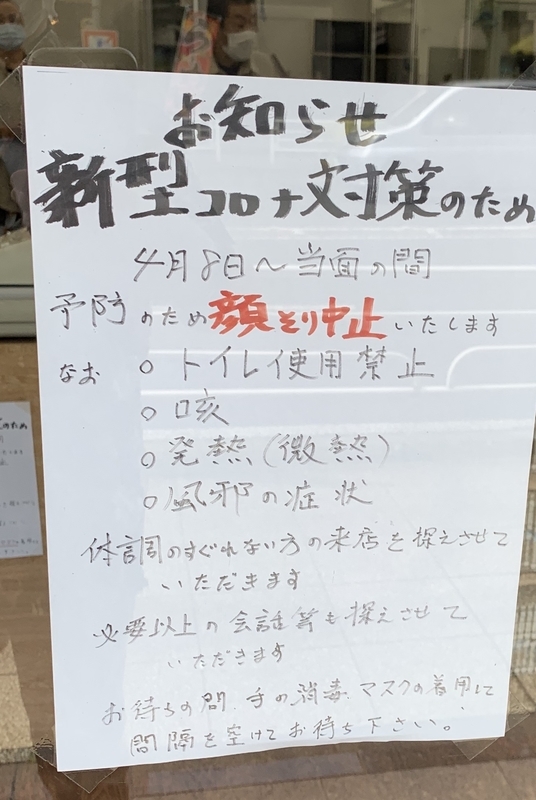 お知らせ
新型コロナ対策のため
4月8日～当面の間
予防のため顔そり中止いたします
なお ○ トイレ使用禁止
○ 咳
○ 発熱(微熱)
○ 風邪の症状
体調のすぐれない方の来店を控えさせて
いただきます
必要以上の会話等も控えさせて
いただきます
お待ちの間、手の消毒、マスクの着用にて
間隔を空けてお待ち下さい。